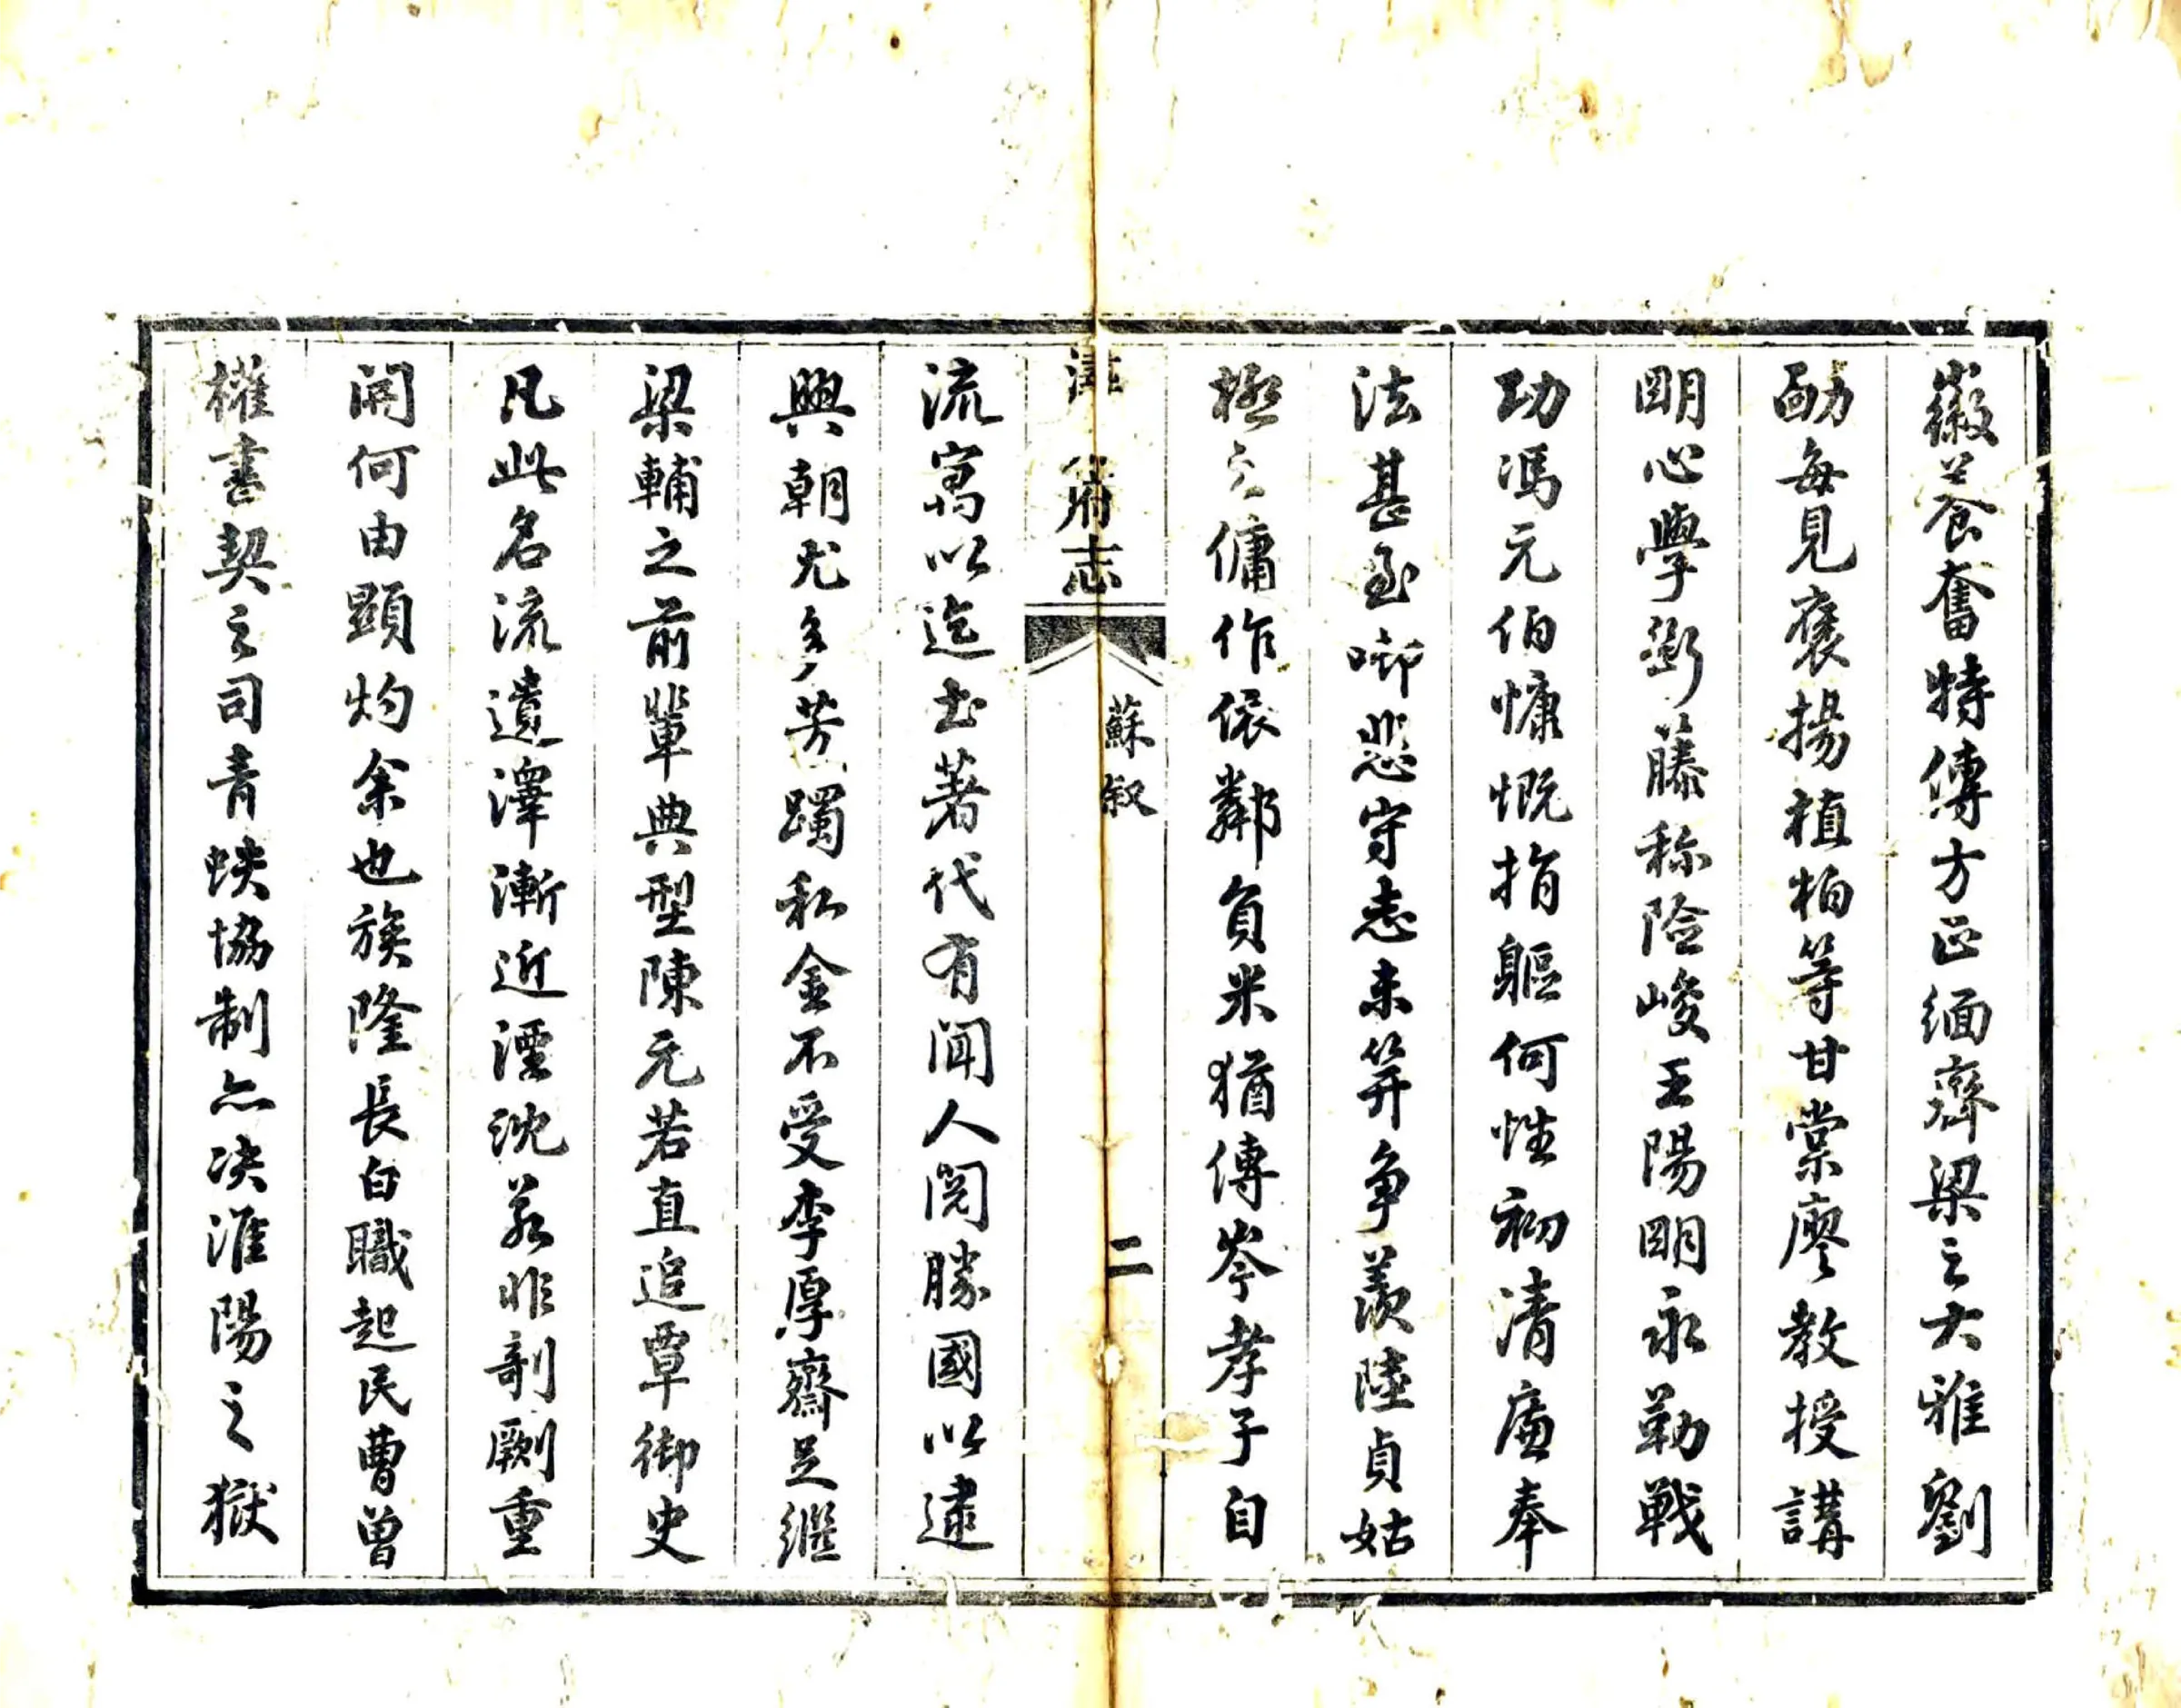 徽養奮特傳方正緬齊梁之大雅劉
勔每見褒揚植柏等甘棠廖教授講
明心學鄧藤称險峻王陽明永勒戰
功馮元伯慷慨捐軀何惟初清廉奉
法甚至啣悲守志未笄争羨陸貞姑
極之傭作偎鄰負米猶傳岑孝子自
潯 府志 蘇叙 二
流寓以迄土著代有聞人閲勝國以逮
興朝尤多芳躅私金不受李厚齋足繼
梁輔之前輩典型陳元若直追覃御史
凡此名流遺澤漸近湮沈若非剞劂重
開何由顯灼余也族隆長白職起民曹曾
權書契之司青蚨協制亦决淮陽之獄